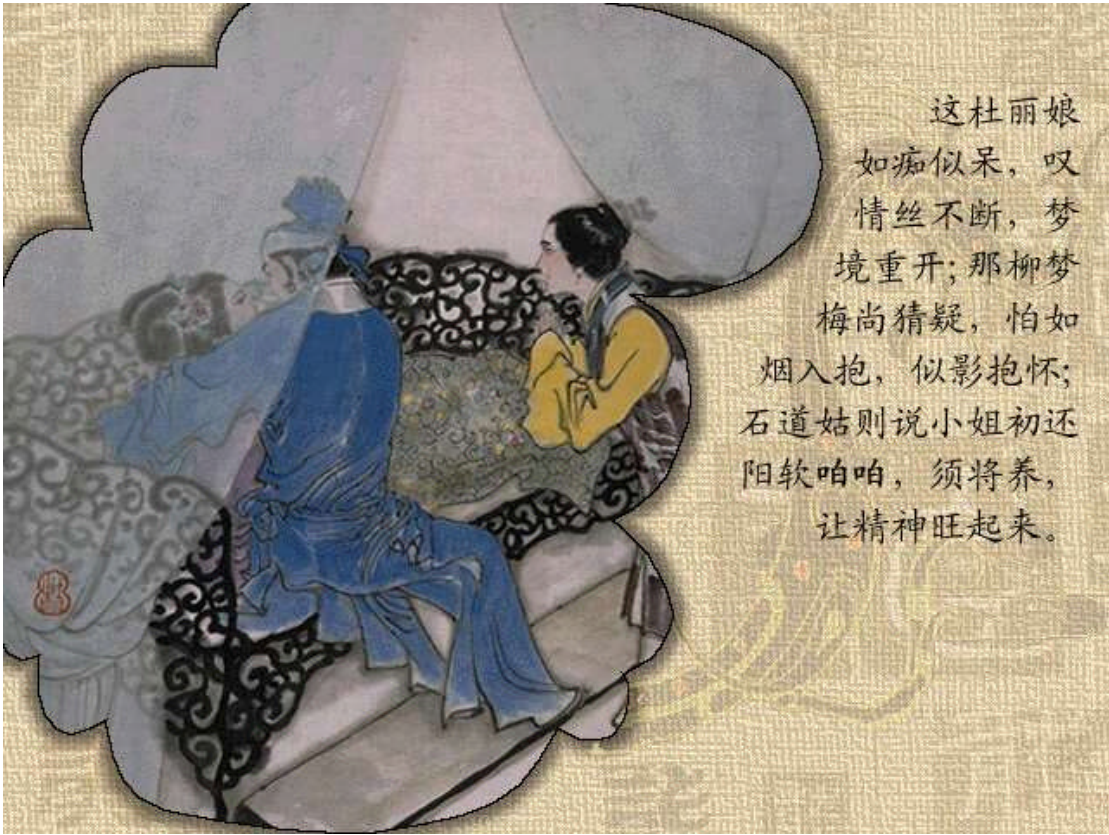 这杜丽娘
如痴似呆，叹
情丝不断，梦
境重开；那柳梦
梅尚猜疑，怕如
烟入抱，似影抱怀；
石道姑则说小姐初还
阳软咍咍，须将养，
让精神旺起来。